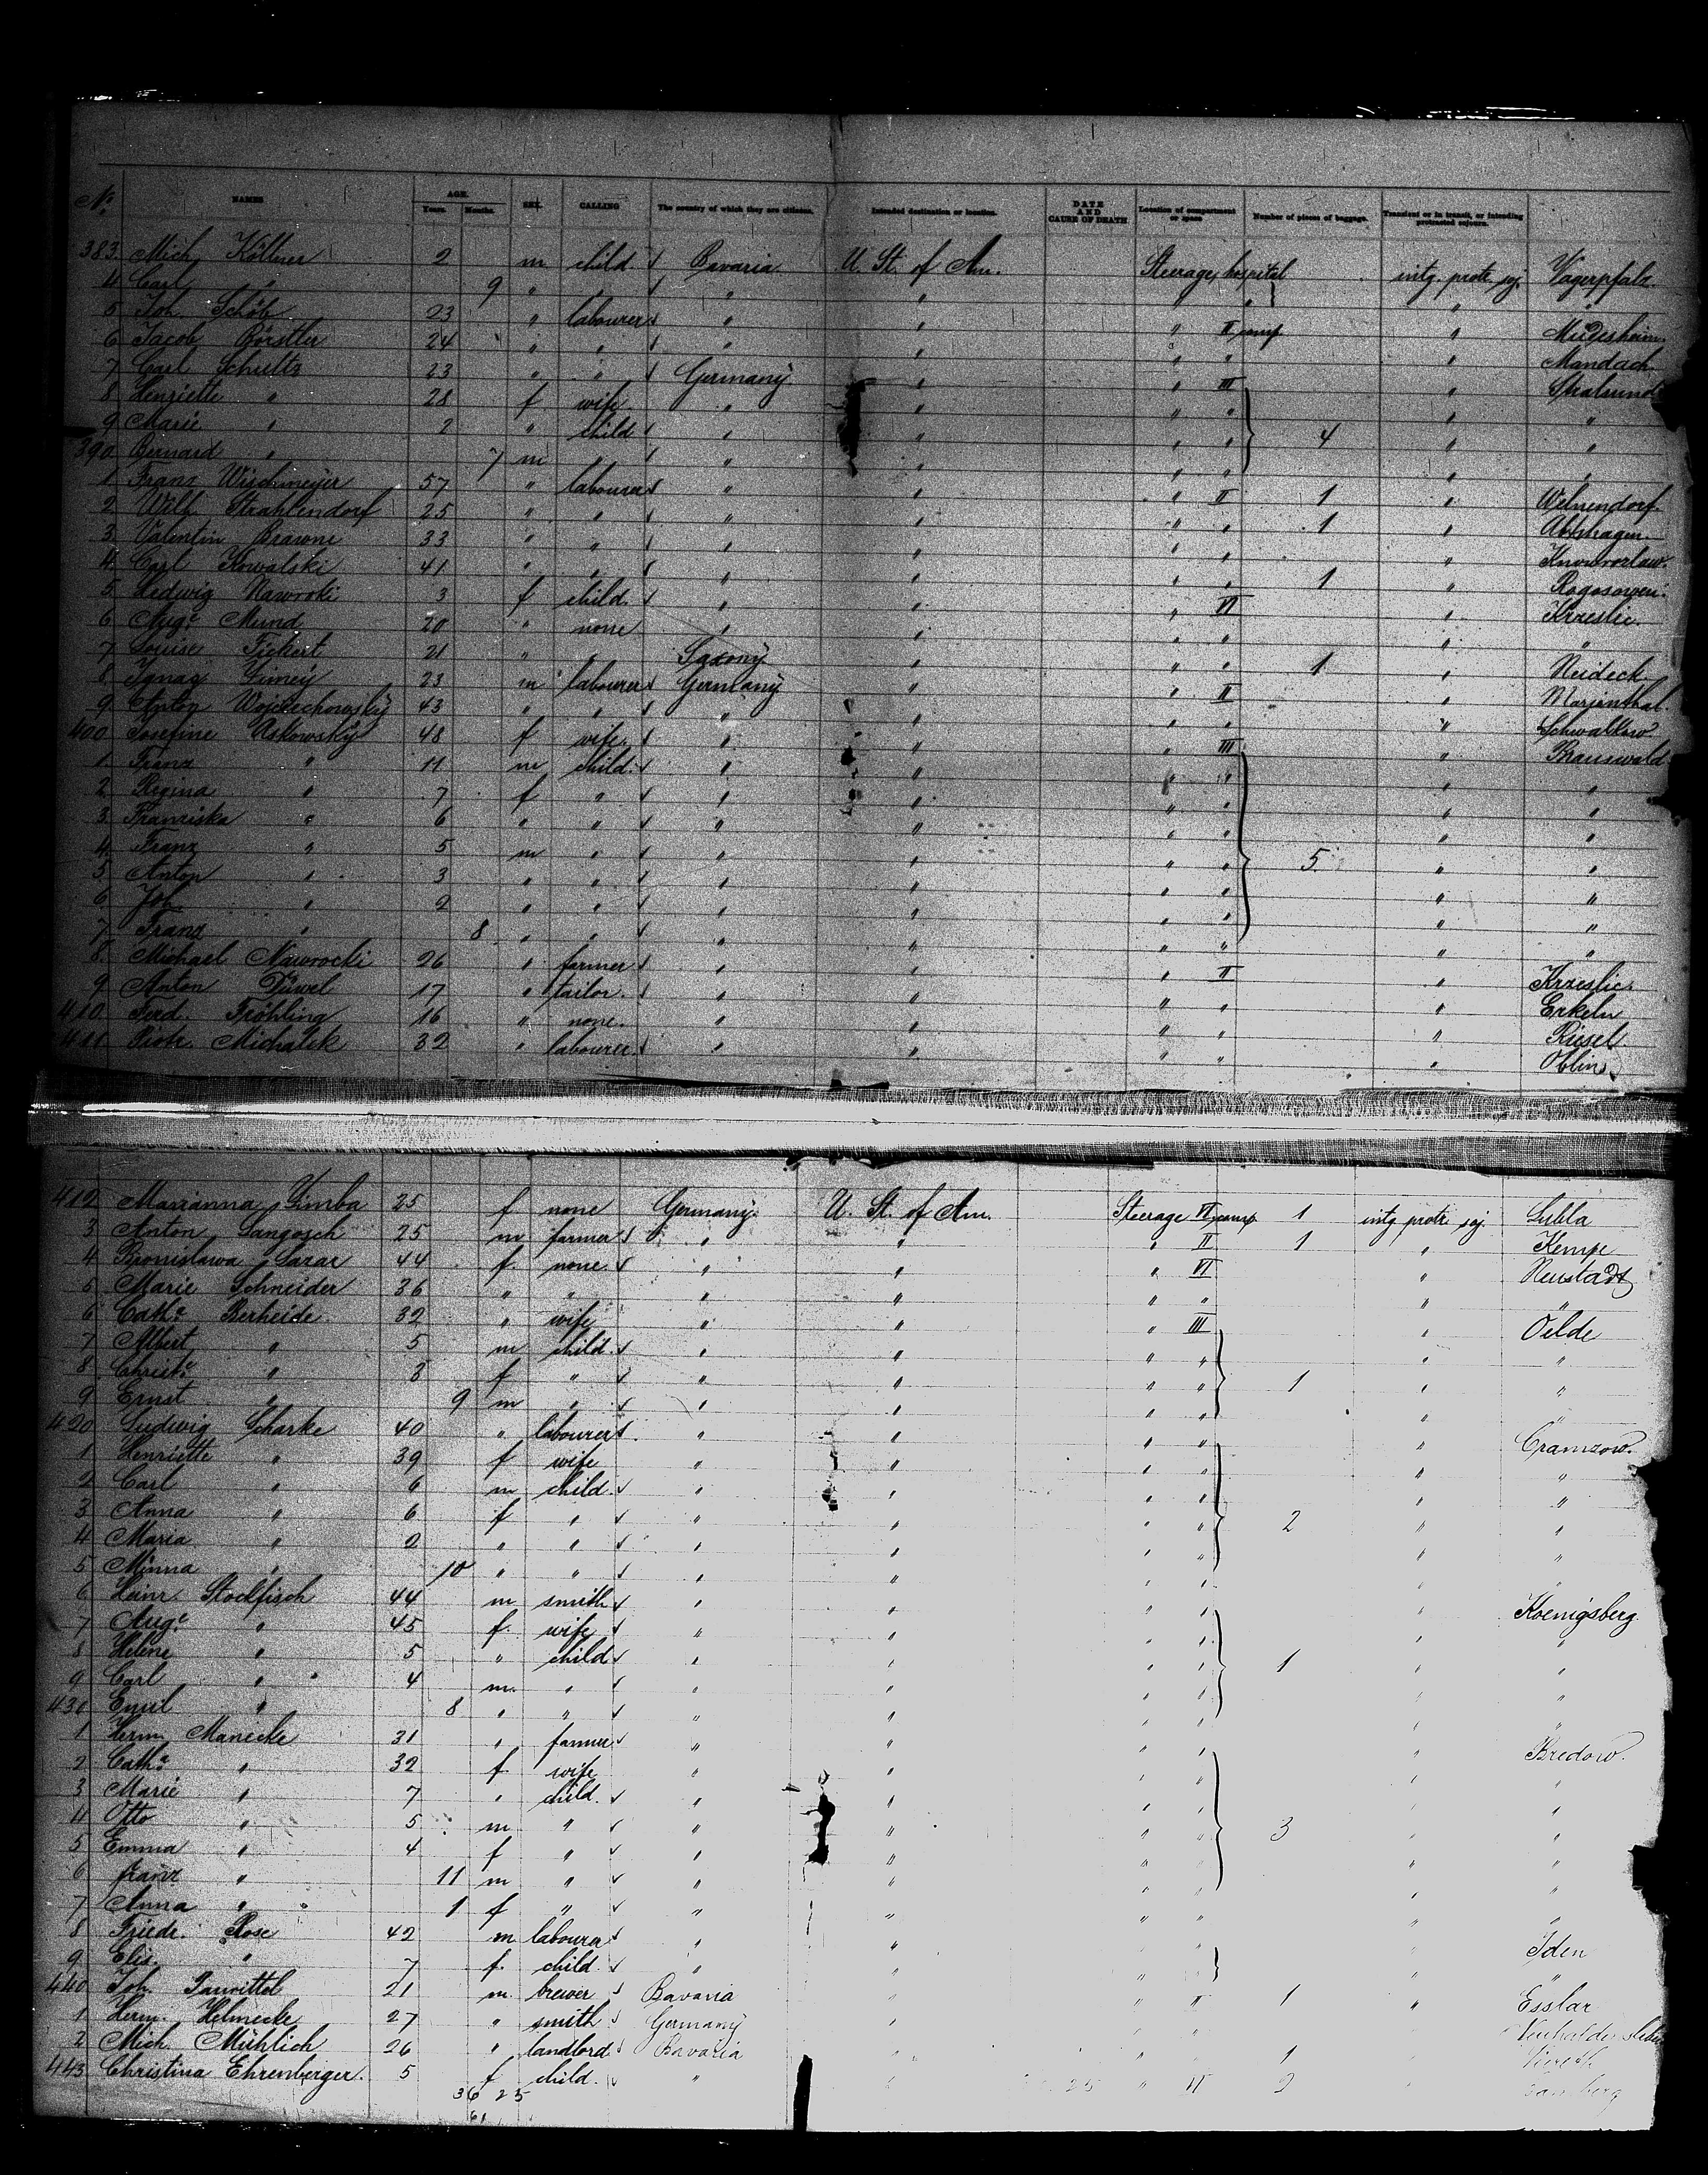 No. NAMES AGE. Years. Months. SEX. CALLING The country of which they are citizens. Intended destination or location. DATE AND CAUSE OF DEATH Location of compartment or space Number of pieces of baggage. Transient or in transit, or intending protracted sojourn.
383. Mich. Köllner 2 m child. Bavaria U. St. of Am. Steerage, hospital intg. protr. soj.
4 Carl " 9 " " " " "
5 Joh. Schöb 23 " labourer " " " II comp "
6 Jacob Börstler 24 " " " " " " " Mandach
7 Carl Schultz 23 " " Germany " " III " Stralsund
8 Henriette " 28 f wife " " " " " "
9 Marie " 2 " child " " " " 4 " "
390 Bernard " 7 m " " " " " " "
1 Franz Wischmeyer 57 " labourer " " " II 1 "
2 Wilh. Strahlendorf 25 " " " " " " 1 " Abtshagen
3 Valentin Brawne 33 " " " " " " "
4 Carl Kowalski 41 " " " " " " 1 "
5 Hedwig Nawrocki 3 f child. " " " VI "
6 Auge Mund 20 " none " " " " "
7 Louise Fickert 21 " " Saxony " " " 1 " Neideck
8 Ignaz 23 m labourer Germany " " II " Marienthal.
9 Anton Wojciechowsky 43 " " " " " " "
400 Josefine Askowsky 48 f wife. " " " III " Braunswald
1 Franz " 11 m child. " " " " " "
2 Regina " 7 f " " " " " " "
3 Franziska " 6 " " " " " " " "
4 Franz " 5 m " " " " " 5. " "
5 Anton " 3 " " " " " " " "
6 Joh. " 2 " " " " " " " "
7 Franz " 8 " " " " " " " "
8. Michael Nawrocki 26 " farmer " " " II " Krzeslic.
9 Anton Düwel 17 " tailor. " " " " " Erkeln
410 Ferd. Fröhling 16 " none. " " " " " Riesel
411 Piotr Michalek 32 " labourer. " " " " " Oblin
412 Marianna Zimba 25 f none Germany. U. St. of Am. Steerage VI comp. 1 intg protr soj. Lubla
3 Anton Langosch 25 m farmer " " " II 1 " Kempe
4 Bronislawa Lazar 44 f none. " " " VI " Neustadt
5 Marie Schneider 36 " " " " " " " "
6 Cathe Berheide. 32 " wife " " " III " Oelde
7 Albert " 5 m child. " " " " " "
8 Christe " 3 f " " " " " 1 " "
9 Ernst " 9 m " " " " " " "
420 Ludwig Scharke 40 " labourer. " " " " " Cramzow.
1 Henriette " 39 f wife " " " " " "
2 Carl " 6 m child " " " " " "
3 Anna " 6 f " " " " " 2 " "
4 Maria " 2 " " " " " " " "
5 Minna " 10 " " " " " " " "
6 Heinr. Stockfisch 44 m smith " " " " " Koenigsberg
7 Auge " 45 f. wife " " " " " "
8 Helene " 5 " child " " " " 1 " "
9 Carl " 4 m. " " " " " " "
430 Emil " 8 " " " " " " " "
1 Herm. Manecke 31 " farmer " " " " " Bredow.
2 Cathe " 32 f wife " " " " " "
3 Marie " 7 " child. " " " " " "
4 Otto " 5 m " " " " " 3 " "
5 Emma " 4 f " " " " " " "
6 Franz " 11 m " " " " " " "
7 Anna " 1 f " " " " " " "
8 Friedr. Rose 42 m labourer " " " " " Iden
9 Elis. " 7 f. child. " " " " " "
440 Joh. 21 m. brewer Bavaria " " II 1 " Esslar
1 Herm. Helmecke 27 " smith Germany " " "
2 Mich. Mühlich 26 " landlord Bavaria " " " 1 "
443 Christina Ehrenberger. 5 f child. " " " VI 2 "
36 25
61